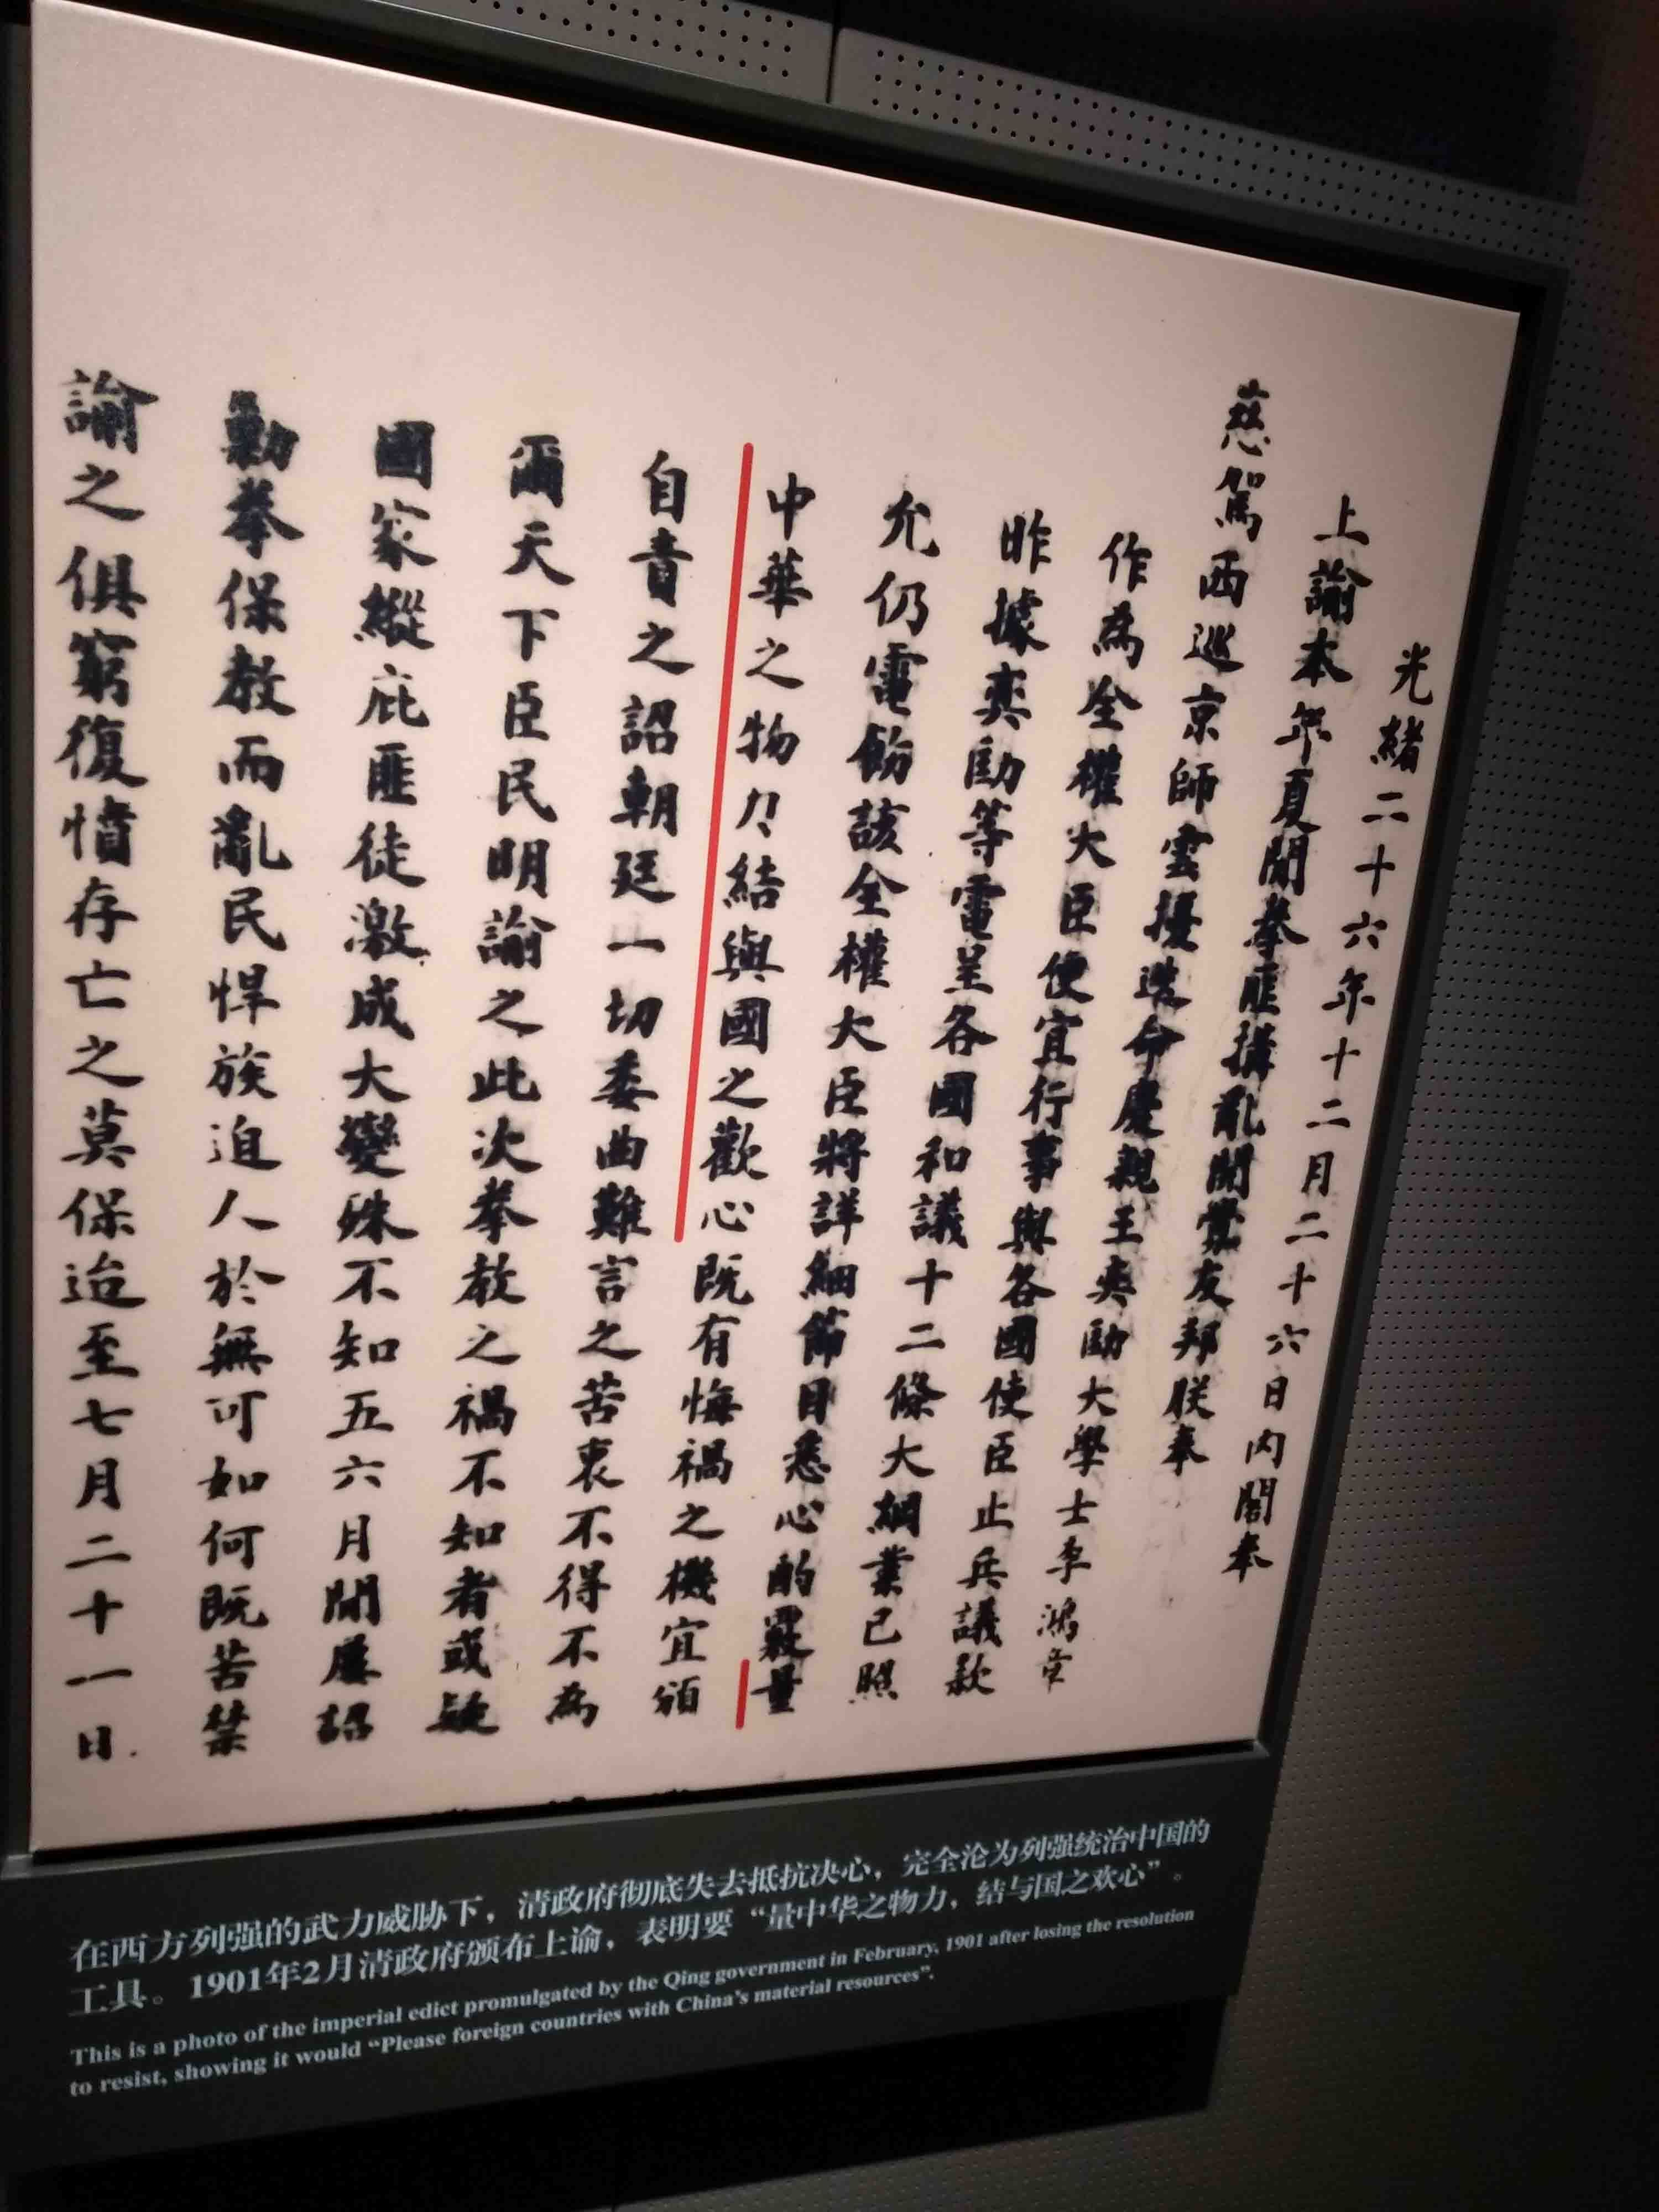 光緒二十六年十二月二十六日內閣奉
上諭本年夏間拳匪搆亂開釁友邦朕奉
慈駕西巡京師雲擾迭命慶親王奕劻大學士李鴻章
作為全權大臣便宜行事與各國使臣止兵議款
昨據奕劻等電呈各國和議十二條大綱業已照
允仍電飭該全權大臣將詳細節目悉心酌覈量
中華之物力結與國之歡心既有悔禍之機宜頒
自責之詔朝廷一切委曲難言之苦衷不得不為
爾天下臣民明諭之此次拳教之禍不知者或疑
國家縱庇匪徒激成大變殊不知五六月間屢詔
勦拳保教而亂民悍族迫人於無可如何既苦禁
諭之俱窮復憤存亡之莫保迨至七月二十一日
在西方列强的武力威胁下，清政府彻底失去抵抗决心，完全沦为列强统治中国的
工具。1901年2月清政府颁布上谕，表明要“量中华之物力，结与国之欢心”。
This is a photo of the imperial edict promulgated by the Qing government in February, 1901 after losing the resolution
to resist, showing it would “Please foreign countries with China's material resources”.